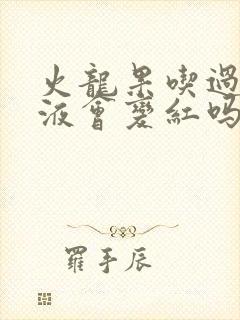 火龍果喫過
液會變紅吗
羅手辰